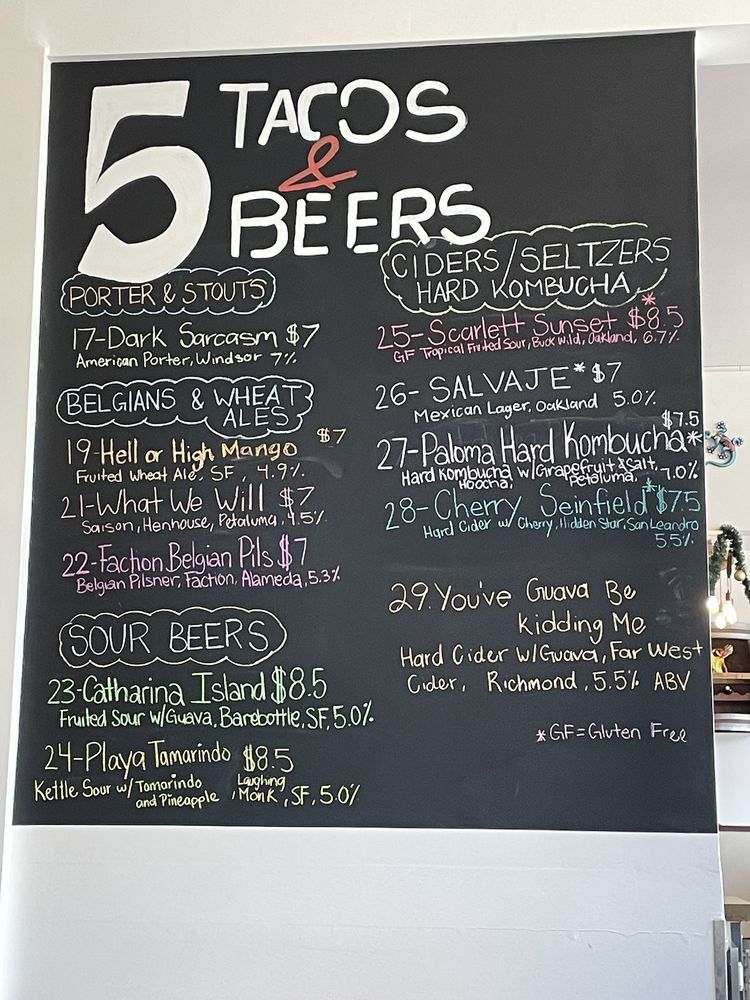 5 TACOS
&
BEERS
PORTER & STOUTS
17-Dark Sarcasm $7
American Porter, Windsor 7%
BELGIANS & WHEAT
ALES
19-Hell or High Mango $7
Fruited Wheat Ale, SF, 4.9%
21-What We Will $7
Saison, Henhouse, Petaluma, 4.5%
22-Faction Belgian Pils $7
Belgian Pilsner, Faction, Alameda, 5.3%
SOUR BEERS
23-Catharina Island $8.5
Fruited Sour w/Guava, Barebottle, SF, 5.0%
24-Playa Tamarindo $8.5
Kettle Sour w/Tamarindo
and Pineapple
Laughing
, Monk, SF, 5.0%
CIDERS/SELTZERS
HARD KOMBUCHA
25-Scarlett Sunset *$8.5
GF Tropical Fruited Sour, Buck Wild, Oakland, 6.7%
26-SALVAJE* $7
Mexican Lager, Oakland 5.0%
$7.5
27-Paloma Hard Kombucha*
Hard Kombucha w/Grapefruit & Salt,
Hoocha, Petaluma, 7.0%
28-Cherry Seinfield* $7.5
Hard Cider w/ Cherry, Hidden Star, San Leandro
5.5%
29. You've Guava Be
Kidding Me
Hard Cider w/Guava, Far West
Cider, Richmond, 5.5% ABV
*GF=Gluten Free